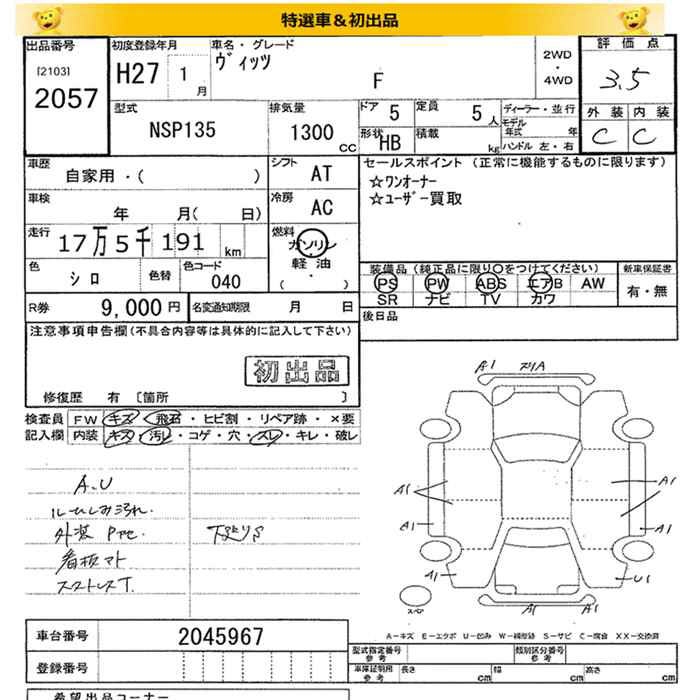 特選車＆初出品
出品番号
[2103]
2057
初度登録年月
H27 1 月
車名・グレード
ヴィッツ
F
2WD
・
4WD
評価点
3.5
外装 内装
C C
型式
NSP135
排気量
1300 CC
ドア 5
定員 5人
形状 HB
積載 kg
ディーラー・並行
モデル年式 年
ハンドル 左・右
車歴
自家用・( )
シフト AT
車検
年 月( 日)
冷房 AC
走行
17万5千191 km
燃料
ガソリン
軽油
・( )
色 シロ
色替
色コード 040
セールスポイント (正常に機能するものに限ります)
☆ワンオーナー
☆ユーザー買取
装備品 (純正品に限り○をつけてください)
PS PW ABS エアB AW
SR ナビ TV カワ
新車保証書
有・無
R券 9,000 円
名変通知期限 月 日
後日品
注意事項申告欄(不具合内容等は具体的に記入して下さい)
初出品
修復歴 有 [箇所 ]
検査員
記入欄
FW キズ・飛石・ヒビ割・リペア跡・×要
内装 キズ・汚レ・コゲ・穴・スレ・キレ・破レ
A.U
外装
看板マト
A1
A1
A1
A1
A1
A1
A1
U1
A1
A1
A−キズ E−エクボ U−凹み W−補修跡 S−サビ C−腐食 XX−交換済
車台番号 2045967
登録番号
型式指定番号
参考
類別区分番号
参考
車庫証明用
参考
長さ cm
幅 cm
高さ cm
希望出品コーナー